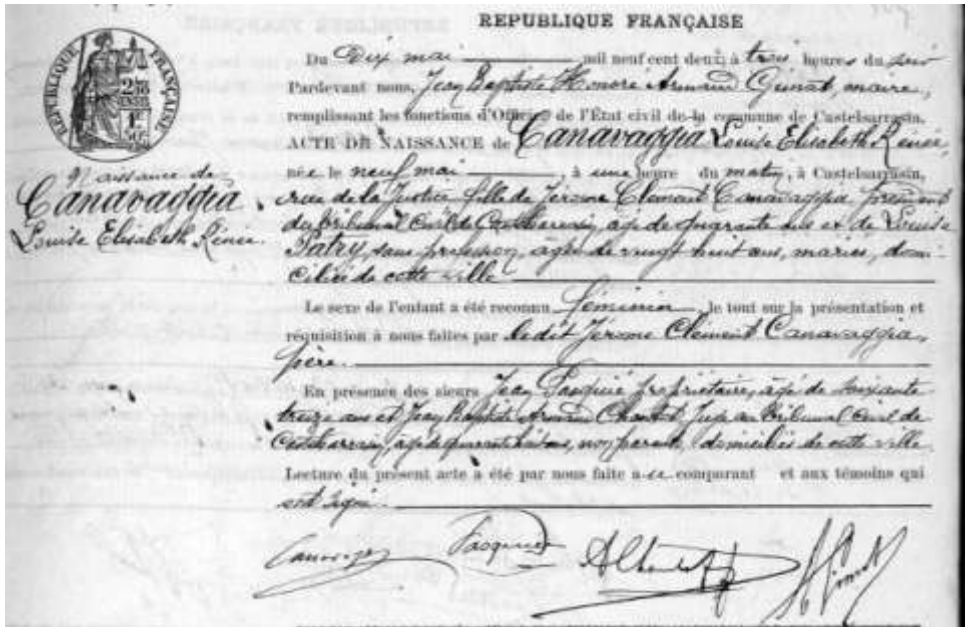 REPUBLIQUE FRANÇAISE
Du Dix mai mil neuf cent deux, à trois heures du soir
Pardevant nous, Jean Baptiste Honoré Armand maire,
remplissant les fonctions d'Officier de l'État civil de la commune de Castelsarrasin,
ACTE DE NAISSANCE de Canavaggia Louise Elisabeth Rénée,
née le neuf mai, à une heure du matin, à Castelsarrasin,
rue de la Justice fille de Jérome Clément Canavaggia, président
du tribunal Civil de Castelsarrasin, agé de quarante et de Louise
Patry, sans profession, agée de vingt huit ans, mariés, domi-
ciliés de cette ville
Le sexe de l'enfant a été reconnu féminin, le tout sur la présentation et
réquisition à nous faites par ledit Jérome Clément Canavaggia,
père.
En présence des sieurs Jean Pasquié propriétaire, agé de soixante
treize ans et Jean Baptiste Armand Juge au tribunal Civil de
Castelsarrasin, agé de quarante ans, non parents, domiciliés de cette ville
Lecture du présent acte a été par nous faite a ce comparant et aux témoins qui
ont signé.
REPUBLIQUE FRANÇAISE
Naissance de
Canavaggia
Louise Elisabeth Rénée.
Canavaggia Pasquié